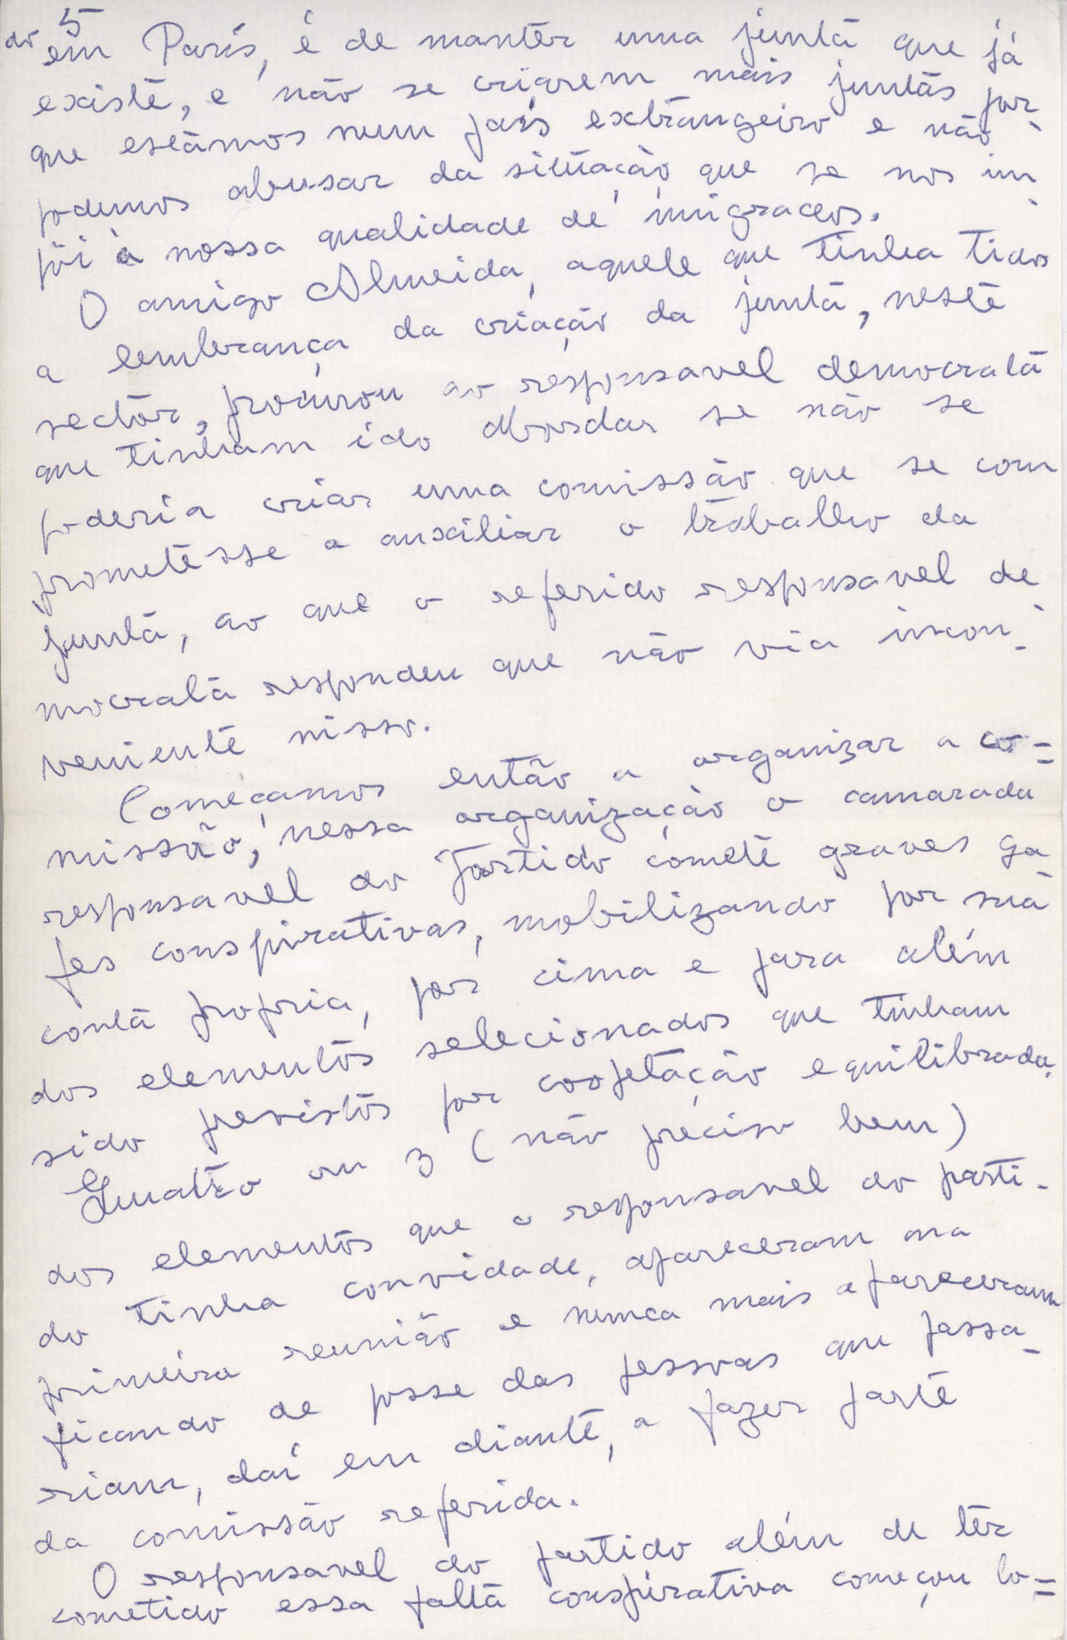 5
do em Paris, é de mantêr uma junta que já
existe, e não se criarem mais juntas por
que estâmos num país extrangeiro e não
podemos abusar da situação que se nos im-
pôi à nossa qualidade de imigrados.
O amigo Almeida, aquele que tinha tido
a lembrança da criação da junta, neste
sector, procurou ao responsavel democrata
que tinham ido abordar se não se
poderia criar uma comissão que se com
prometesse a auxiliar o trabalho da
junta, ao que o referido responsavel de
mocrata respondeu que não via incon-
veniente nisso.
Começamos então a organizar a co=
missão, nessa organização o camarada
responsavel do Partido comete graves ga
fes conspirativas, mobilizando por sua
conta propria, por cima e para além
dos elementos selecionados que tinham
sido previstos por cooptação equilibrada.
Quatro ou 3 (não preciso bem)
dos elementos que o responsavel do parti-
do tinha convidade, apareceram na
primeira reunião e nunca mais apareceram
ficando de posse das pessoas que passa-
riam, daí em diante, a fazer parte
da comissão referida.
O responsavel do partido além de têr
cometido essa falta conspirativa começou lo=